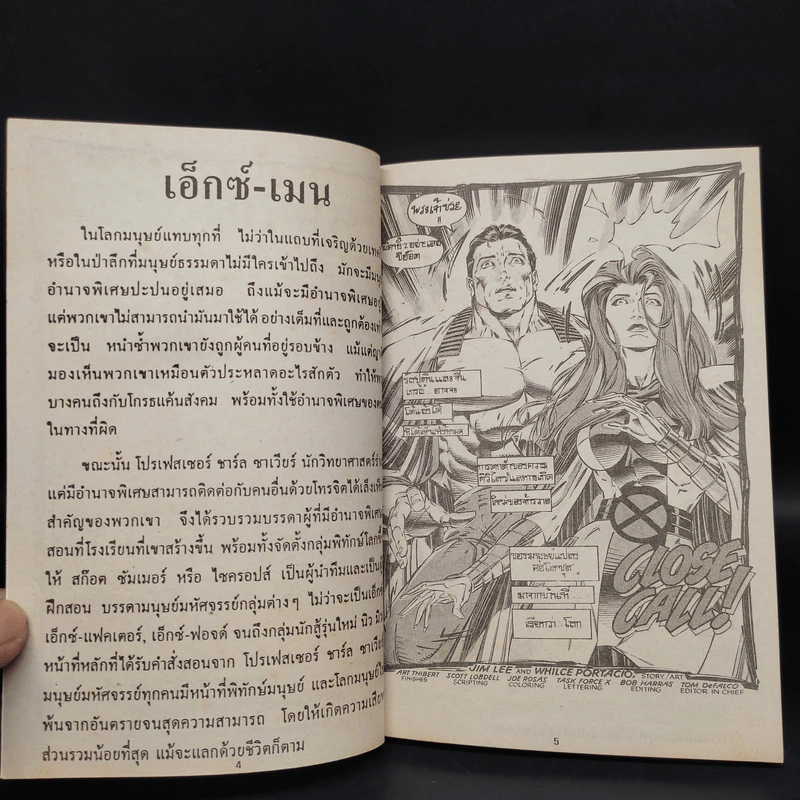 เอ็กซ์-เมน
ในโลกมนุษย์แทบทุกที่ ไม่ว่าในแถบที่เจริญด้วย
หรือในป่าลึกที่มนุษย์ธรรมดาไม่มีใครเข้าไปถึง มักจะมี
อำนาจพิเศษปะปนอยู่เสมอ ถึงแม้จะมีอำนาจพิเศษ
แต่พวกเขาไม่สามารถนำมันมาใช้ได้อย่างเต็มที่และถูกต้อง
จะเป็น หนำซ้ำพวกเขายังถูกผู้คนที่อยู่รอบข้าง แม้แต่
มองเห็นพวกเขาเหมือนตัวประหลาดอะไรสักตัว ทำให้
บางคนถึงกับโกรธแค้นสังคม พร้อมทั้งใช้อำนาจพิเศษของ
ในทางที่ผิด
ขณะนั้น โปรเฟสเซอร์ ชาร์ล ซาเวียร์ นักวิทยาศาสตร์
แต่มีอำนาจพิเศษสามารถติดต่อกับคนอื่นด้วยโทรจิตได้เล็งเห็น
สำคัญของพวกเขา จึงได้รวบรวมบรรดาผู้ที่มีอำนาจพิเศษ
สอนที่โรงเรียนที่เขาสร้างขึ้น พร้อมทั้งจัดตั้งกลุ่มพิทักษ์โลก
ให้ สก๊อต ซัมเมอร์ หรือ ไซครอปส์ เป็นผู้นำทีมและเป็น
ฝึกสอน บรรดามนุษย์มหัศจรรย์กลุ่มต่างๆ ไม่ว่าจะเป็น
เอ็กซ์-แฟคเตอร์, เอ็กซ์-ฟอจด์ จนถึงกลุ่มนักสู้รุ่นใหม่ นิว
หน้าที่หลักที่ได้รับคำสั่งสอนจาก โปรเฟสเซอร์ ชาร์ล ซาเวียร์
มนุษย์มหัศจรรย์ทุกคนมีหน้าที่พิทักษ์มนุษย์ และโลกมนุษย์
พ้นจากอันตรายจนสุดความสามารถ โดยให้เกิดความเสีย
ส่วนรวมน้อยที่สุด แม้จะแลกด้วยชีวิตก็ตาม
4
พระเจ้าช่วย
!!
การฆ่าตัวของความ
ของมนุษย์แปลง
เรียกว่า โลก
CLOSE
CALL!
JIM LEE AND WHILCE PORTACIO, STORY/ART
ART THIBERT SCOTT LOBDELL JOE ROSAS TASK FORCE X BOB HARRAS TOM DeFALCO
FINISHES SCRIPTING COLORING LETTERING EDITING EDITOR IN CHIEF
5